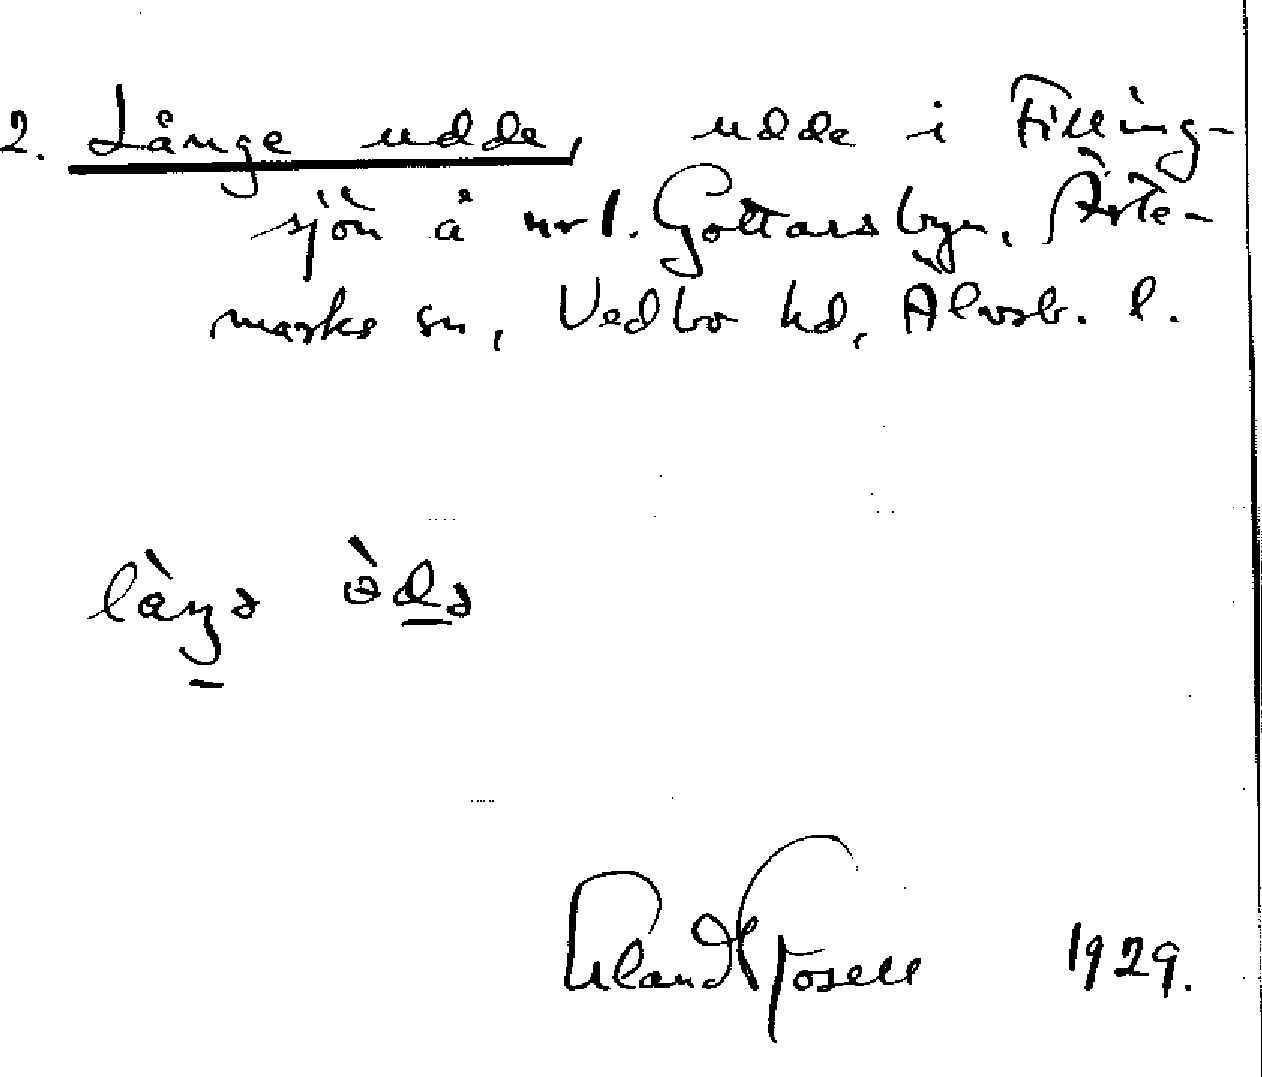 2. Långe udde, udde i Filling-
sjön å nr 1. Gottarsbyn, Ärte-
marks sn, Vedbo hd, Älvsb. l.
Erland Rosell 1929.